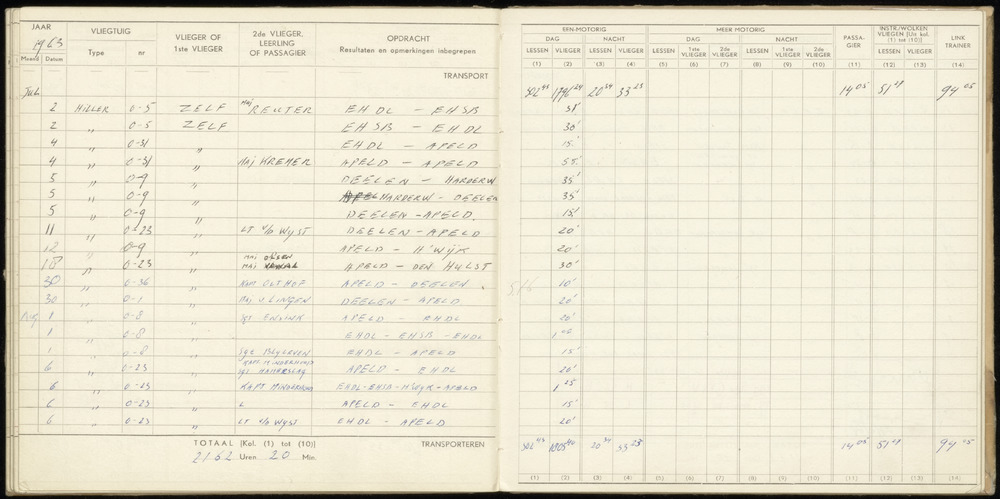 JAAR 1963 VLIEGTUIG VLIEGER OF 1ste VLIEGER 2de VLIEGER, LEERLING OF PASSAGIER OPDRACHT Resultaten en opmerkingen inbegrepen
Maand Datum Type nr
EEN-MOTORIG MEER MOTORIG PASSA-GIER INSTR/WOLKEN VLIEGEN (Uit kol. (1) tot (10)) LINK TRAINER
DAG NACHT DAG NACHT
LESSEN VLIEGER LESSEN VLIEGER LESSEN 1ste VLIEGER 2de VLIEGER LESSEN 1ste VLIEGER 2de VLIEGER LESSEN VLIEGER
(1) (2) (3) (4) (5) (6) (7) (8) (9) (10) (11) (12) (13) (14)
TRANSPORT
JUL 1796 24 20 34 33 23 14 05 51 28 94 05
2 HILLER 0-5 ZELF Maj REUTER EHDL - EHSB
2 " 0-5 ZELF EHSB - EHDL 30'
4 " 0-31 " EHDL - APELD 15'
4 " 0-31 " Maj KREMER APELD - APELD 55'
5 " 0-9 " DEELEN - HARDERW 35'
5 " 0-9 " HARDERW - DEELEN 35
5 " 0-9 " DEELEN - APELD. 15'
11 " 0-23 " LT v/d WYST DEELEN - APELD 20'
12 " 0-9 " APELD - H'WIJK 20'
18 " 0-23 " MAJ OLSEN APELD - DEN HULST 30'
30 " 0-36 " KAP OLTHOF APELD - DEELEN 10'
30 " 0-1 " Maj v LINGEN DEELEN - APELD 20'
AUG 1 " 0-8 " sgt ENSINK APELD - EHDL 20'
" 0-8 " EHDL - EHSB - EHDL
1 " 0-8 " sgt BLYLEVEN EHDL - APELD 15'
6 " 0-23 " KAPT MINDERHOUD APELD - EHDL 20'
6 " 0-23 " KAPT MINDERHOUD EHDL-EHSB-H'WYK-APELD 1 25
6 " 0-23 " APELD - EHDL 15'
6 " 0-23 " LT v/d WYST EHDL - APELD 20'
TOTAAL [Kol. (1) tot (10)] TRANSPORTEREN
2162 Uren 20 Min.
1805 40 20 34 33 23 14 05 51 28 94 05
(1) (2) (3) (4) (5) (6) (7) (8) (9) (10) (11) (12) (13) (14)